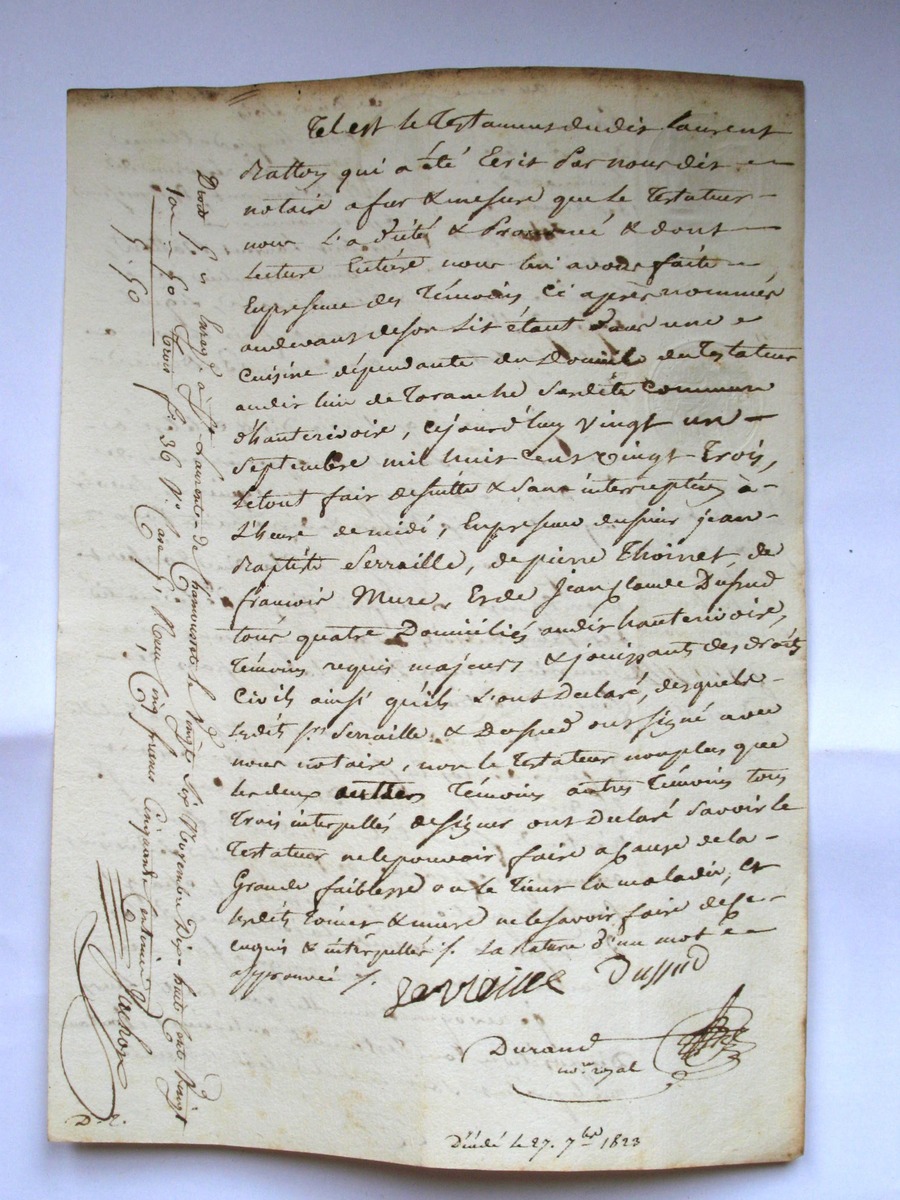 Tel est le Testament dudit laurent
Ratton qui a été Ecrit Par nous dit
notaire a fur & mesure que le Testateur
nous l'a dicté & Prononcé & dont
Lecture Entière nous lui avons faite
En presence des Témoins ci après nommés
audevant de son Lit étant Dans une
Cuisine dépendante du Domicile du Testateur
audit lieu de Toranche Susdite Commune
d'hauterivoire, cejourd'huy vingt un
Septembre mil huit Cent vingt Trois,
Letout fait desuitte & Sans interruption à
L'heure de midi, En presence dusieur jean
Baptiste Serraille, de pierre Thoinet, de
francois Mure, Et de Jean Claude Dussud
tous quatre Domiciliés audit hauterivoire,
Témoins requis majeurs & jouissants des droits
Civils ainsi qu'ils L'ont Declaré, desquels
Lesdits Srs Serraille & Dussud ont signé avec
nous notaire, non le Testateur nonplus que
les deux autres Témoins autres Témoins tous
Trois interpellés designer ont Declaré Savoir le
Testateur nelepouvoir faire a Cause dela
Grande faiblesse ou le Tient la maladie, et
lesdits Toinet & mure nelesavoir faire dece
enquis & interpellés ./. La rature d'un mot
approuvée ./.
Serraille Dussud
Durand
nore royal
Délivré le 27. 7bre 1823
Enregé à St Laurent de Chamousset le vingt Six Novembre Dix huit Cent vingt
trois fo 36 vo Case Reçu Cinq francs Cinquante Centimes
5. 50